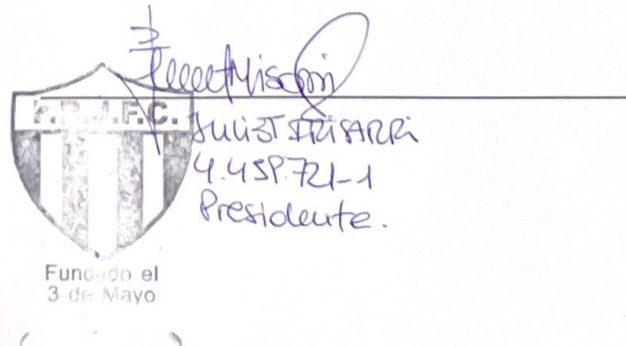 P.D.J.F.C.
JULIET IRISARRI
4.459.721-1
Presidente.
Fundado el
3 de Mayo